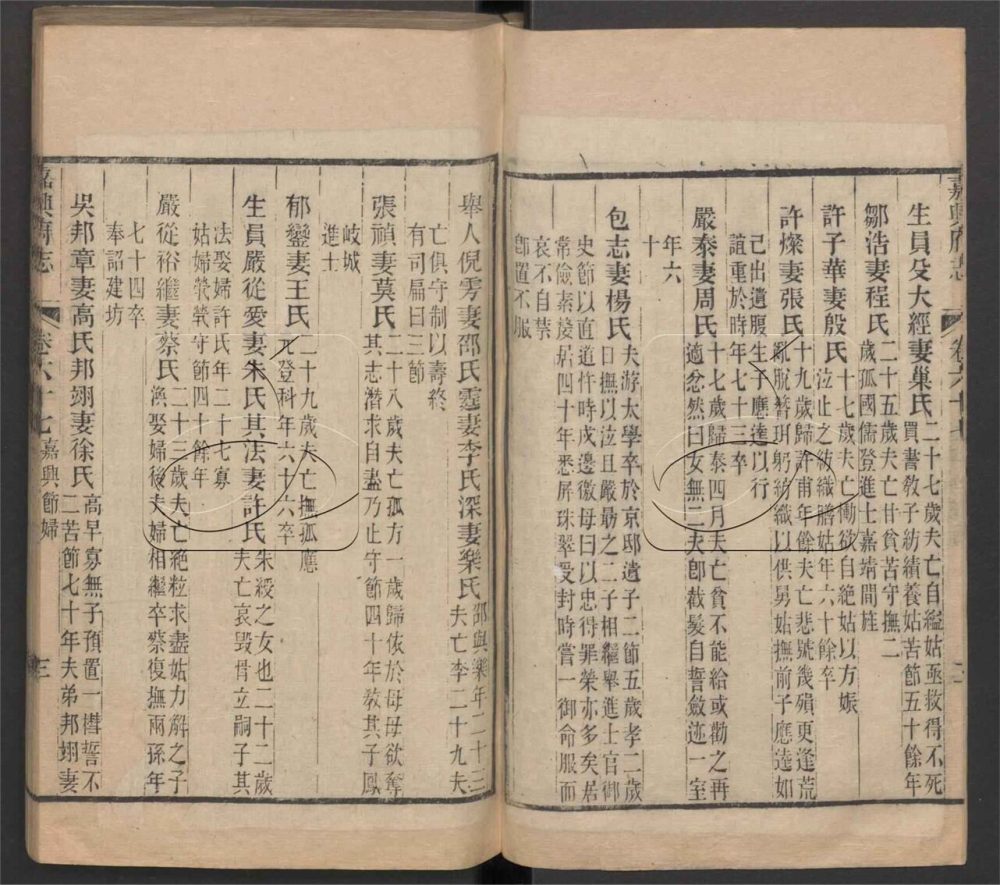 嘉興府志
卷六十七
二
生員殳大經妻巢氏二十七歲夫亡自縊姑亟救得不死
買書敎子紡績養姑苦節五十餘年
鄒浩妻程氏二十五歲夫亡甘貧苦守撫二
歲孤國儒登進士嘉靖間旌
許子華妻殷氏十七歲夫亡慟欲自絕姑以方娠
泣止之紡織膳姑年六十餘卒
許燦妻張氏十九歲歸許甫年餘夫亡悲號幾殞更逢荒
亂脫簪珥躬紡織以供舅姑撫前子應逵如
己出遺腹生子應達以行
誼重於時年七十三卒
嚴泰妻周氏十七歲歸泰四月夫亡貧不能給或勸之再
適忿然曰女無二夫卽截髮自誓斂迹一室
年六
十
包志妻楊氏夫游太學卒於京邸遺子二節五歲孝二歲
日撫以泣且嚴勗之二子相繼舉進士官御
史節以直道忤時戍邊徼母曰以忠得罪榮亦多矣居
常儉素嫠居四十年悉屏珠翠受封時嘗一御命服而
哀不自禁
卽置不服
舉人倪雱妻邵氏霔妻李氏深妻樂氏邵與樂年二十三
夫亡李二十九夫
亡俱守制以壽終
有司扁曰三節
張禎妻莫氏二十八歲夫亡孤方一歲歸依於母母欲奪
其志潛求自盡乃止守節四十年敎其子鳳
岐城
進士
郁鑾妻王氏二十九歲夫亡撫孤應
元登科年六十六卒
生員嚴從愛妻朱氏其法妻許氏朱綬之女也二十二歲
夫亡哀毀骨立嗣子其
法娶婦許氏年二十七寡
姑婦煢煢守節四十餘年
嚴從裕繼妻蔡氏二十三歲夫亡絕粒求盡姑力解之子
渙娶婦後夫婦相繼卒蔡復撫兩孫年
七十四卒
奉詔建坊
吳邦章妻高氏邦翊妻徐氏高早寡無子預置一櫘誓不
二苦節七十年夫弟邦翊妻
嘉興府志
卷六十七
嘉興節婦
三